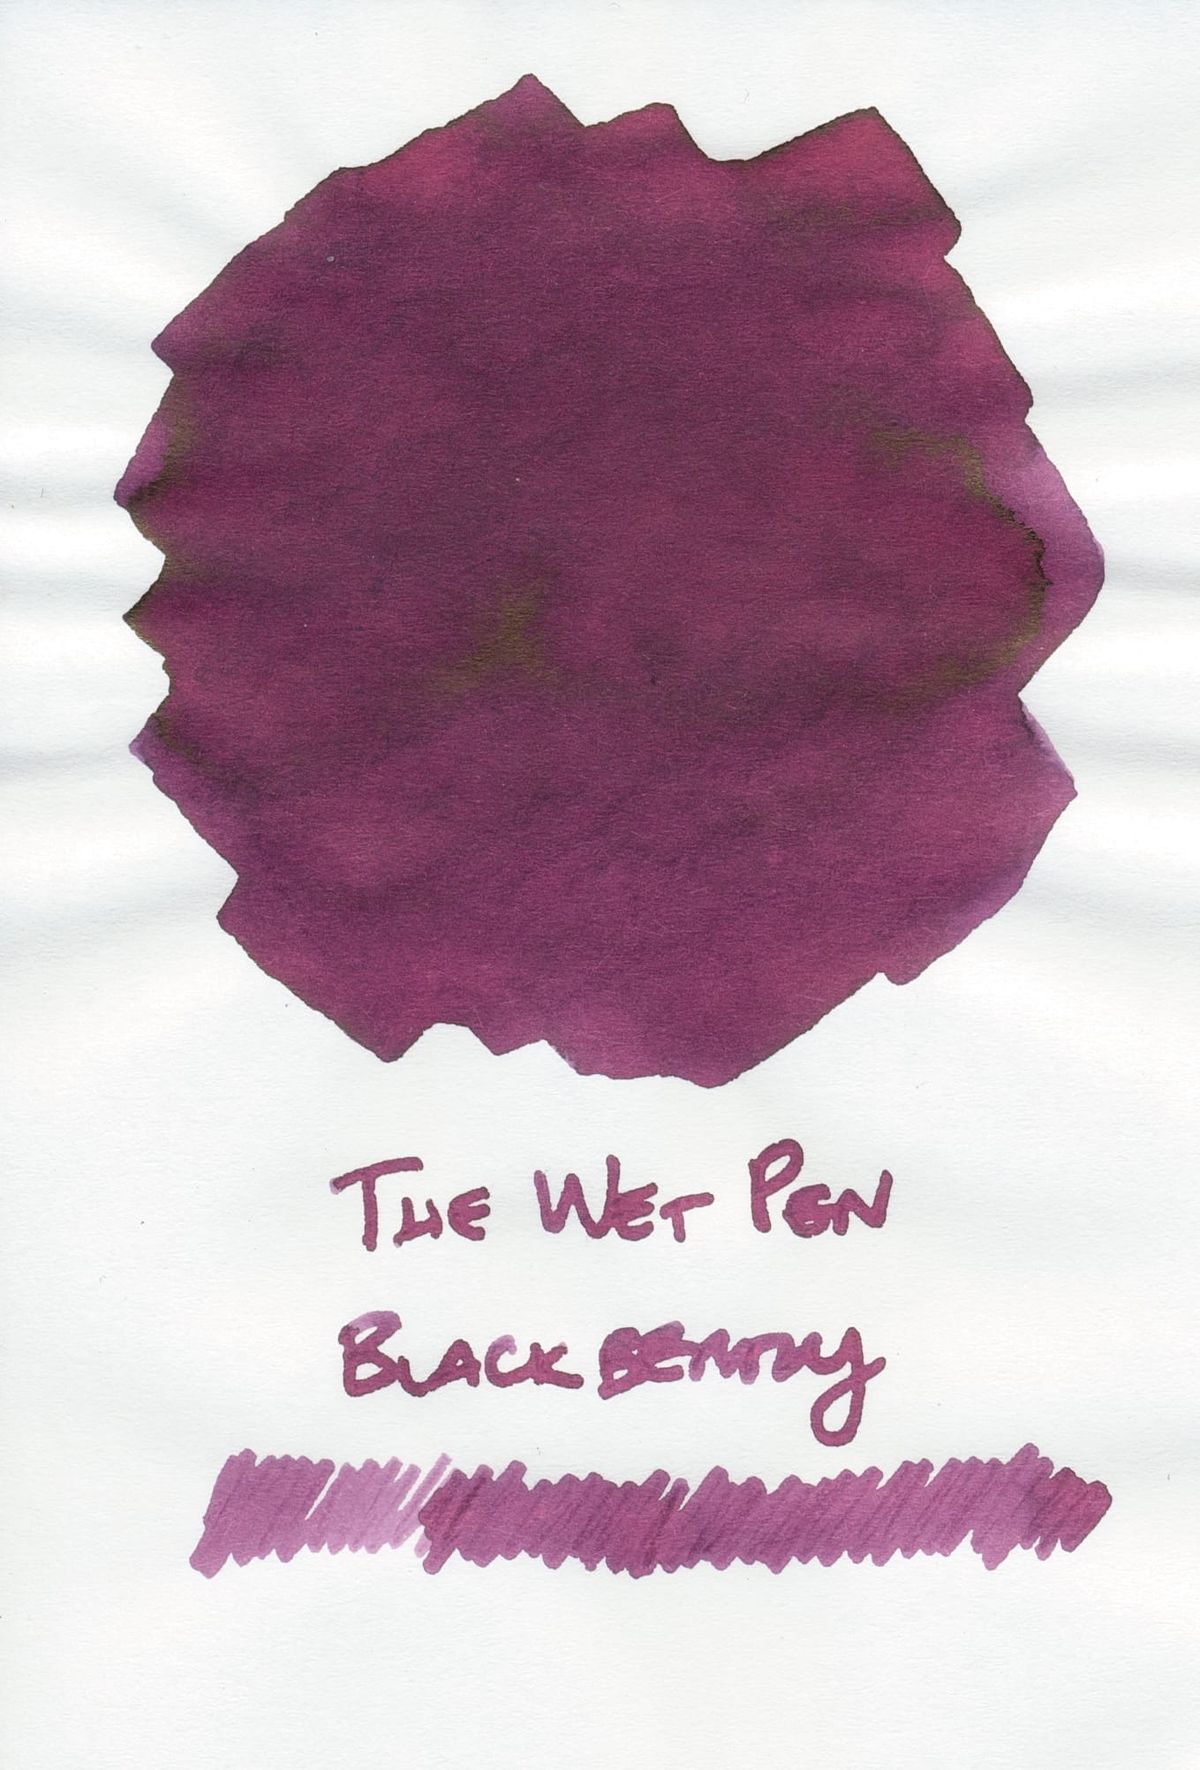 The Wet Pen
Blackberry